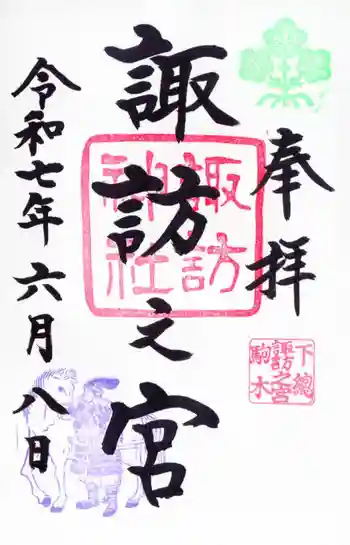 奉拝
諏訪之宮
令和七年六月八日
諏訪
神社
下總
諏訪之宮
駒木